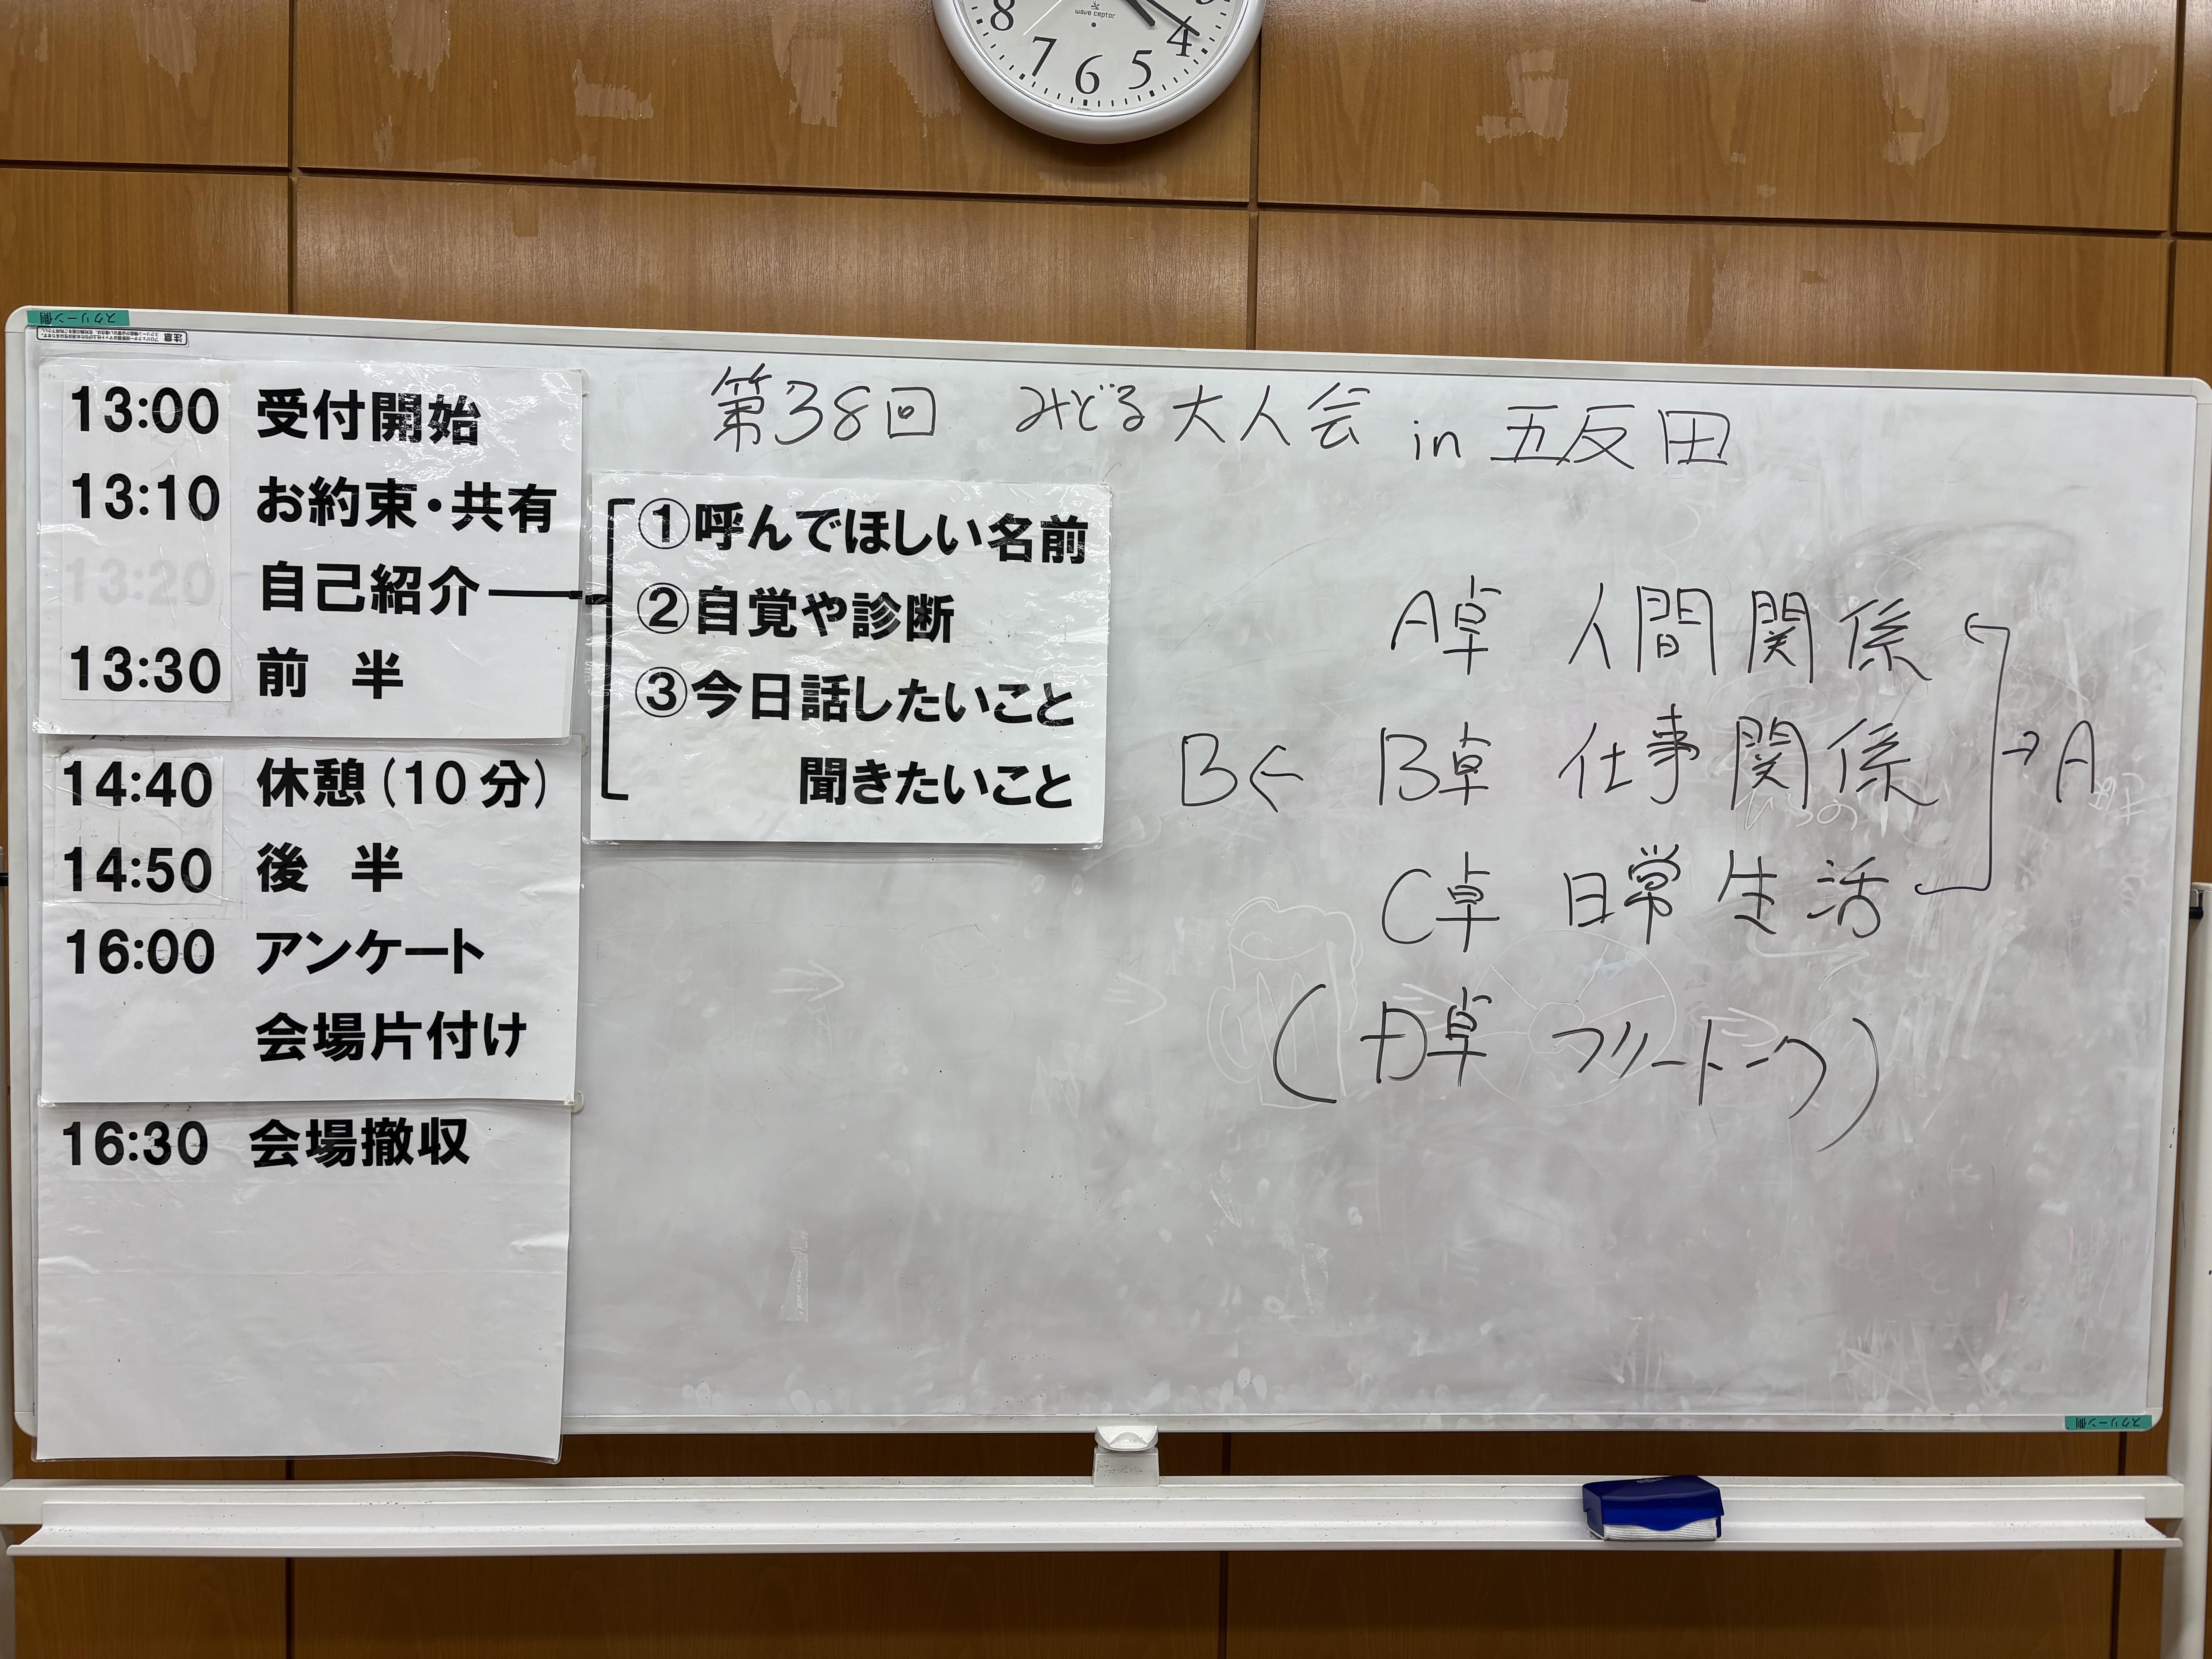 8 7 6 5 4
wave ceptor
スクリーン側
第38回 みどる大人会 in 五反田
13:00 受付開始
13:10 お約束・共有
13:20 自己紹介
13:30 前 半
14:40 休憩(10分)
14:50 後 半
16:00 アンケート
会場片付け
16:30 会場撤収
①呼んでほしい名前
②自覚や診断
③今日話したいこと
聞きたいこと
A卓 人間関係
B← B卓 仕事関係 →A
C卓 日常生活
(D卓 フリートーク)
スクリーン側